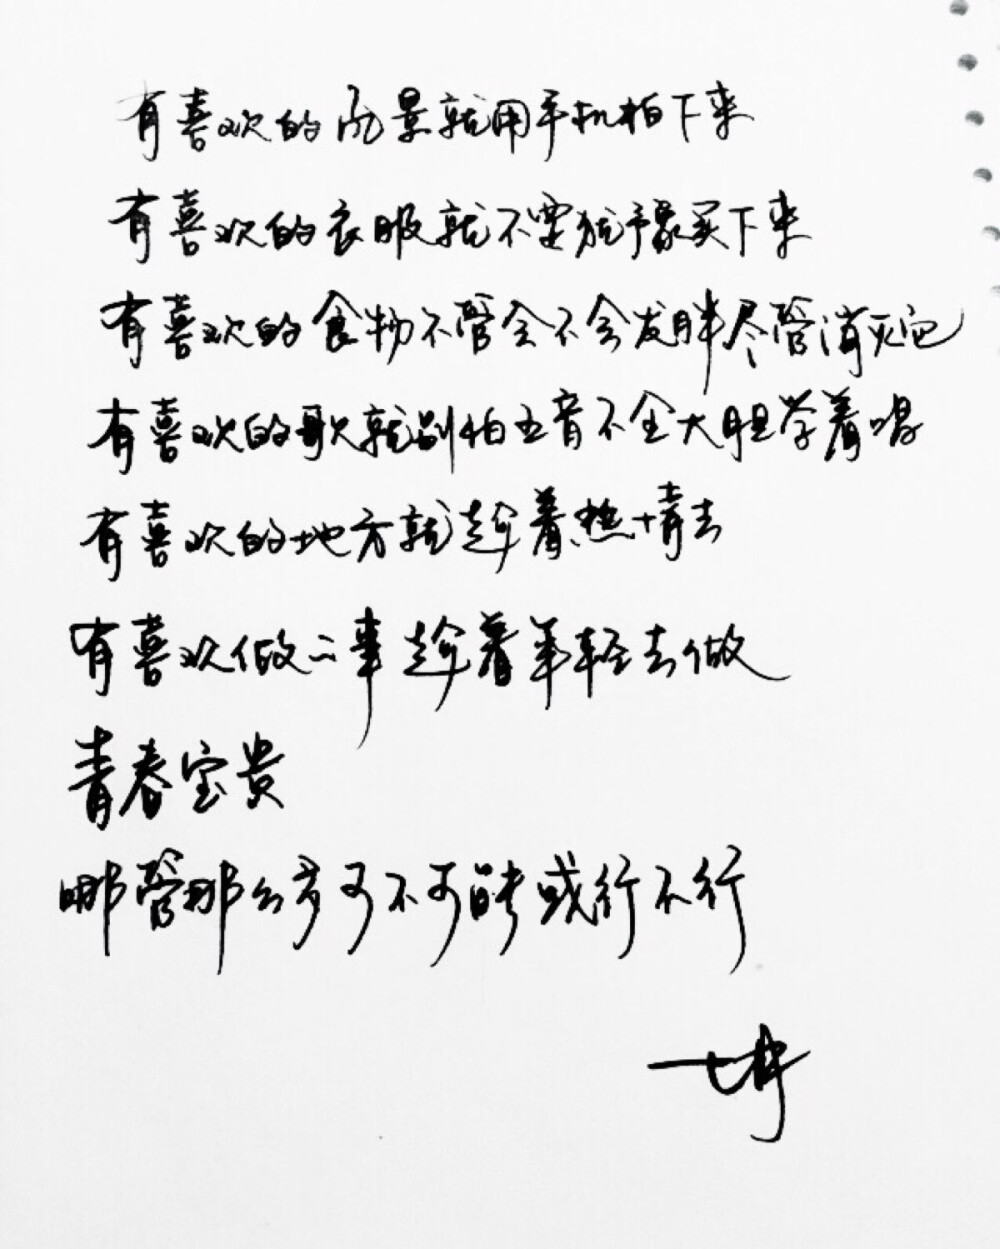 有喜欢的风景就用手机拍下来
有喜欢的衣服就不要犹予象买下来
有喜欢的食物不管会不会发胖尽管消灭它
有喜欢的歌就别怕五音不全大胆学着唱
有喜欢的地方就趁着热情去
有喜欢做的事趁着年轻去做
青春宝贵
哪管那么多可不可能或行不行